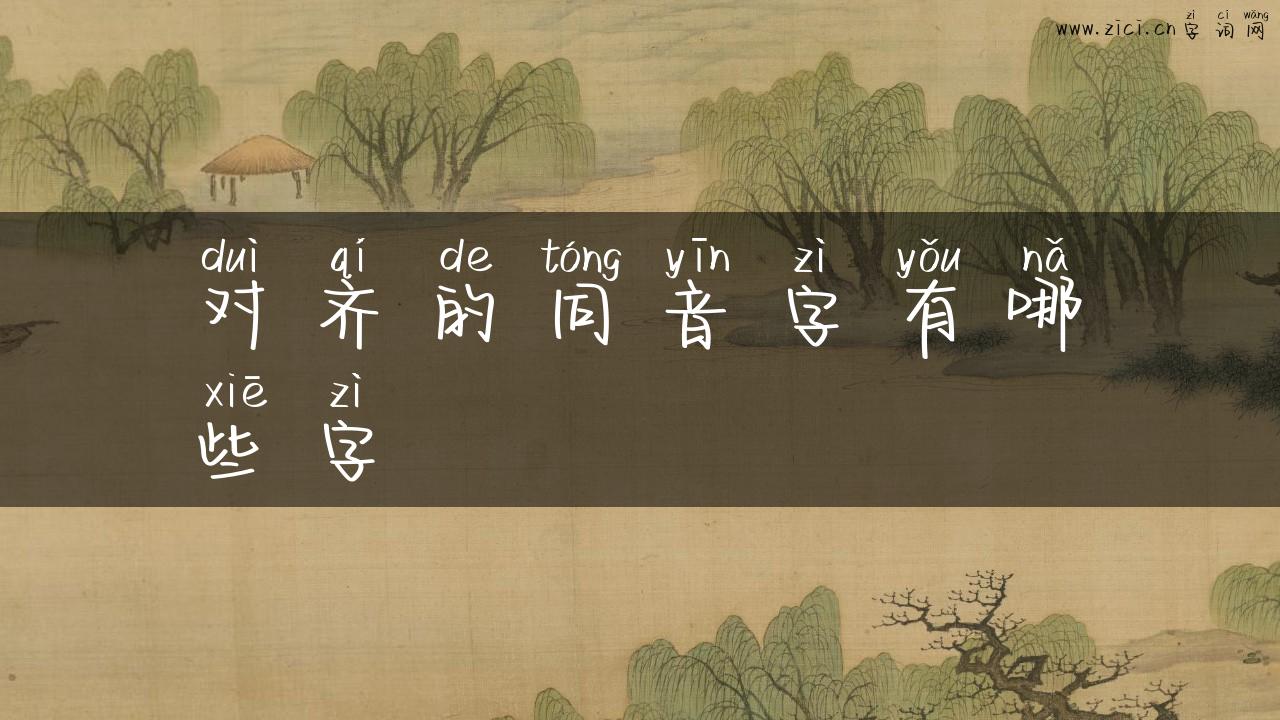 zì cí wǎng
www.zici.cn 字 词 网
duì qí de tóng yīn zì yǒu nǎ
对 齐 的 同 音 字 有 哪
xiē zì
些 字